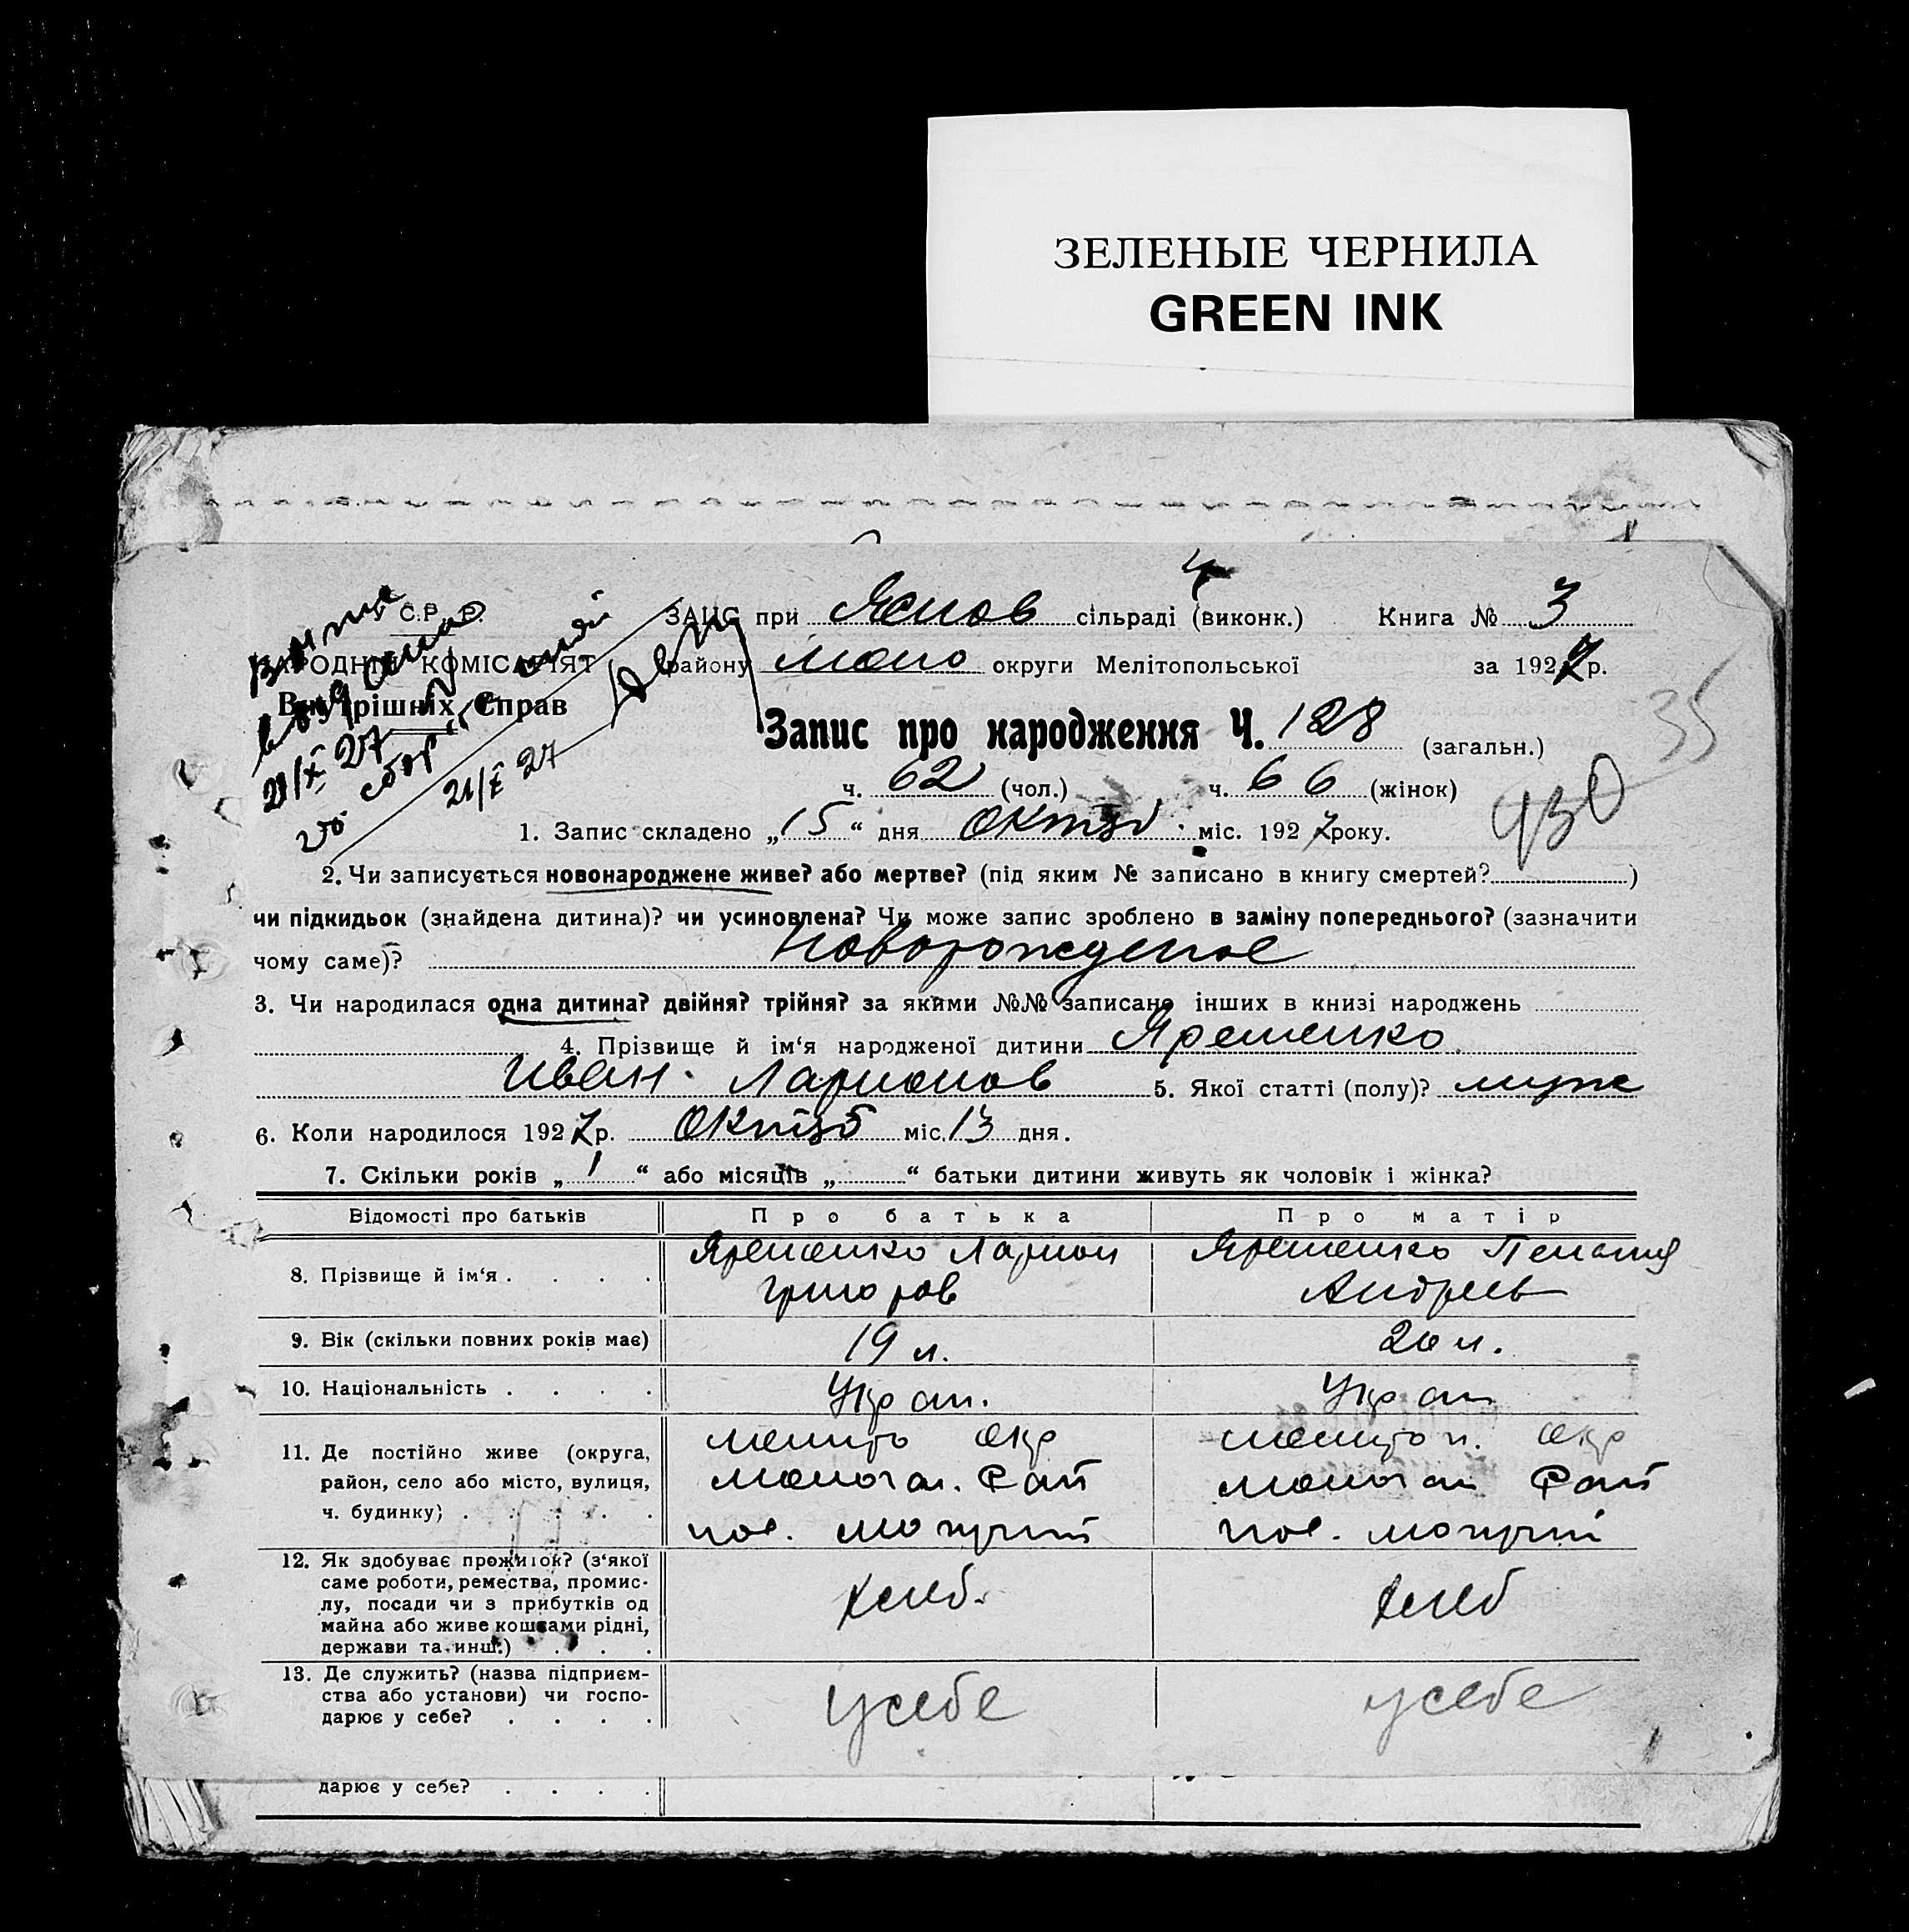 ЗЕЛЕНЫЕ ЧЕРНИЛА
GREEN INK
У. С. Р. Р. ЗАГС при Яснов сільраді (виконк.) Книга № 3
НАРОДНІЙ КОМІСАРІЯТ району округи Мелітопольської за 1927 р.
Внутрішніх Справ
21/X 27
21/X 27
35
Запис про народження Ч. 128 (загальн.)
ч. 62 (чол.) ч. 66 (жінок)
430
1. Запис складено „15“ дня Октяб. міс. 1927 року.
2. Чи записується новонароджене живе? або мертве? (під яким № записано в книгу смертей? )
чи підкидьок (знайдена дитина)? чи усиновлена? Чи може запис зроблено в заміну попереднього? (зазначити
чому саме)? Новорожденое
3. Чи народилася одна дитина? двійня? трійня? за якими №№ записано інших в книзі народжень
4. Прізвище й ім‘я народженої дитини Яременко
Иван Ларионов 5. Якої статті (полу)? муж
6. Коли народилося 1927 р. Октяб міс. 13 дня.
7. Скільки років „1“ або місяців „ “ батьки дитини живуть як чоловік і жінка?
Відомості про батьків Про батька Про матір
8. Прізвище й ім‘я . . . . Яременко Ларион Яременко
Григоров Андреев
9. Вік (скільки повних років має) 19 л. 20 л.
10. Національність . . . . Украи. Украи
11. Де постійно живе (округа, Мелито окр Мелитоп. окр
район, село або місто, вулиця, рай рай
ч. будинку) . . . . . пос. Могучий пос. Могучий
12. Як здобуває прожиток? (з‘якої
саме роботи, ремества, промис-
лу, посади чи з прибутків од хлеб. хлеб
майна або живе коштами рідні,
держави та инш.) . . .
13. Де служить? (назва підприєм-
ства або установи) чи госпо- у себе у себе
дарює у себе? . . . .
дарює у себе? . . . .